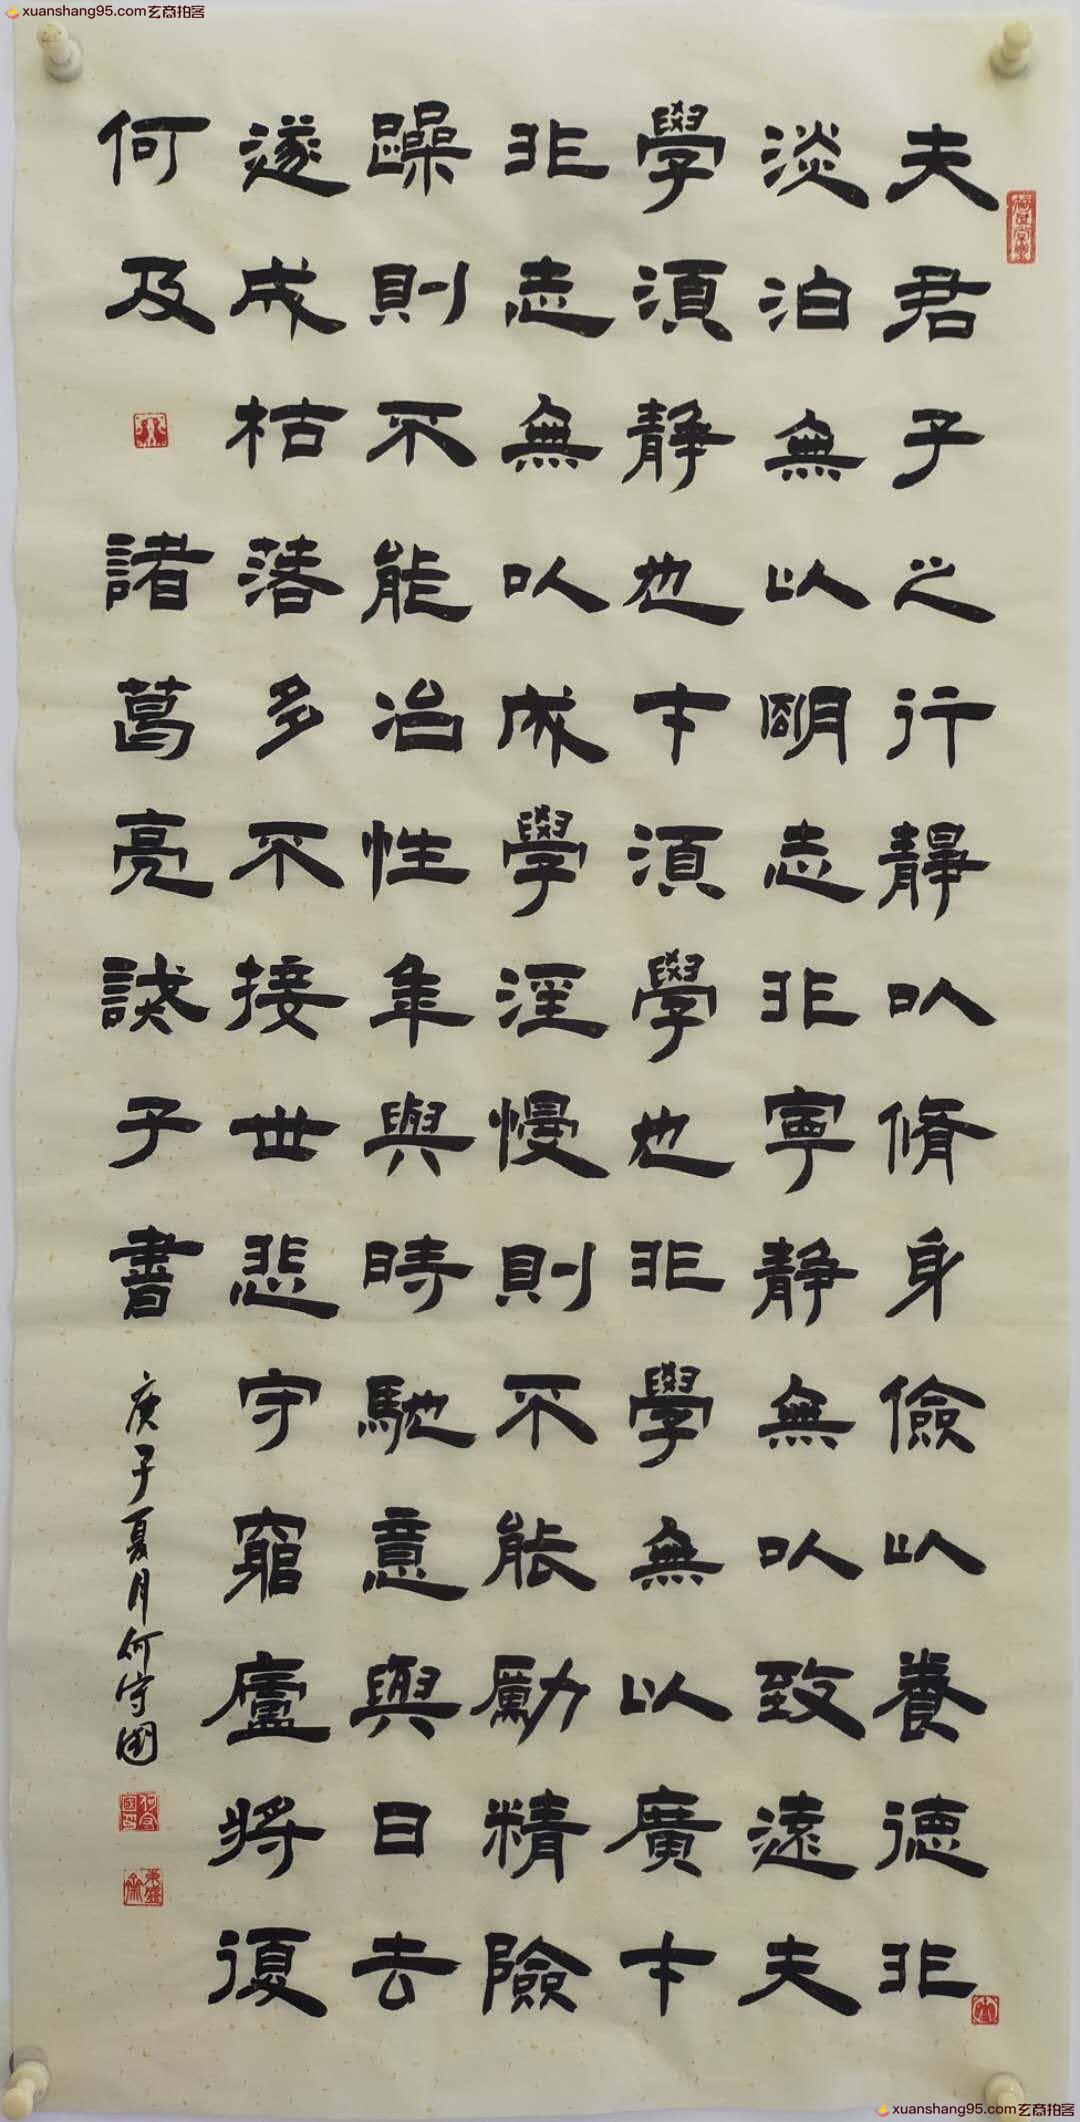 xuanshang95.com玄商拍客
夫君子之行靜以脩身儉以養德非
淡泊無以明志非寧静無以致遠夫
學須静也才須學也非學無以廣才
非志無以成學淫慢則不能勵精險
躁則不能冶性年與時馳意與日去
遂成枯落多不接世悲守窮廬將復
何及 諸葛亮誡子書
庚子夏月何守國
xuanshang95.com玄商拍客